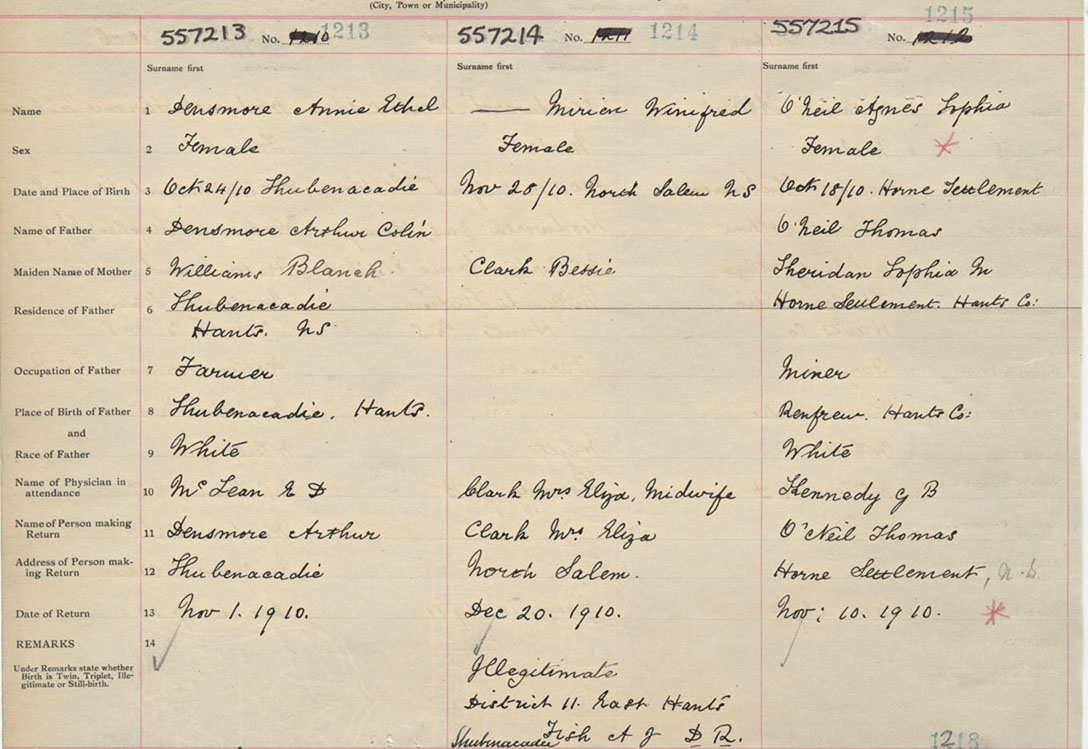 (City, Town or Municipality)
557213 No. 1210 1213 557214 No. 1211 1214 557215 No. 1212 1215
Surname first Surname first Surname first
Name 1 Densmore Annie Ethel — Mirion Winifred O'Neil Agnes Sophia
Sex 2 Female Female Female *
Date and Place of Birth 3 Oct 24/10 Shubenacadie Nov 28/10. North Salem NS Oct 18/10. Horne Settlement
Name of Father 4 Densmore Arthur Colin O'Neil Thomas
Maiden Name of Mother 5 Williams Blanch Clark Bessie Sheridan Sophia M
Residence of Father 6 Shubenacadie Horne Settlement. Hants Co:
Hants. NS
Occupation of Father 7 Farmer Miner
Place of Birth of Father 8 Shubenacadie, Hants. Renfrew. Hants Co:
and
Race of Father 9 White White
Name of Physician in
attendance 10 McLean E D Clark Mrs Eliza, Midwife Kennedy G B
Name of Person making
Return 11 Densmore Arthur Clark Mrs Eliza O'Neil Thomas
Address of Person mak-
ing Return 12 Shubenacadie North Salem. Horne Settlement, N.S.
Date of Return 13 Nov 1. 1910. Dec 20. 1910. Nov: 10. 1910. *
REMARKS 14
Under Remarks state whether
Birth is Twin, Triplet, Ille-
gitimate or Still-birth.
Illegitimate
District 11. East Hants
Shubenacadie Fish A J D R.
1218